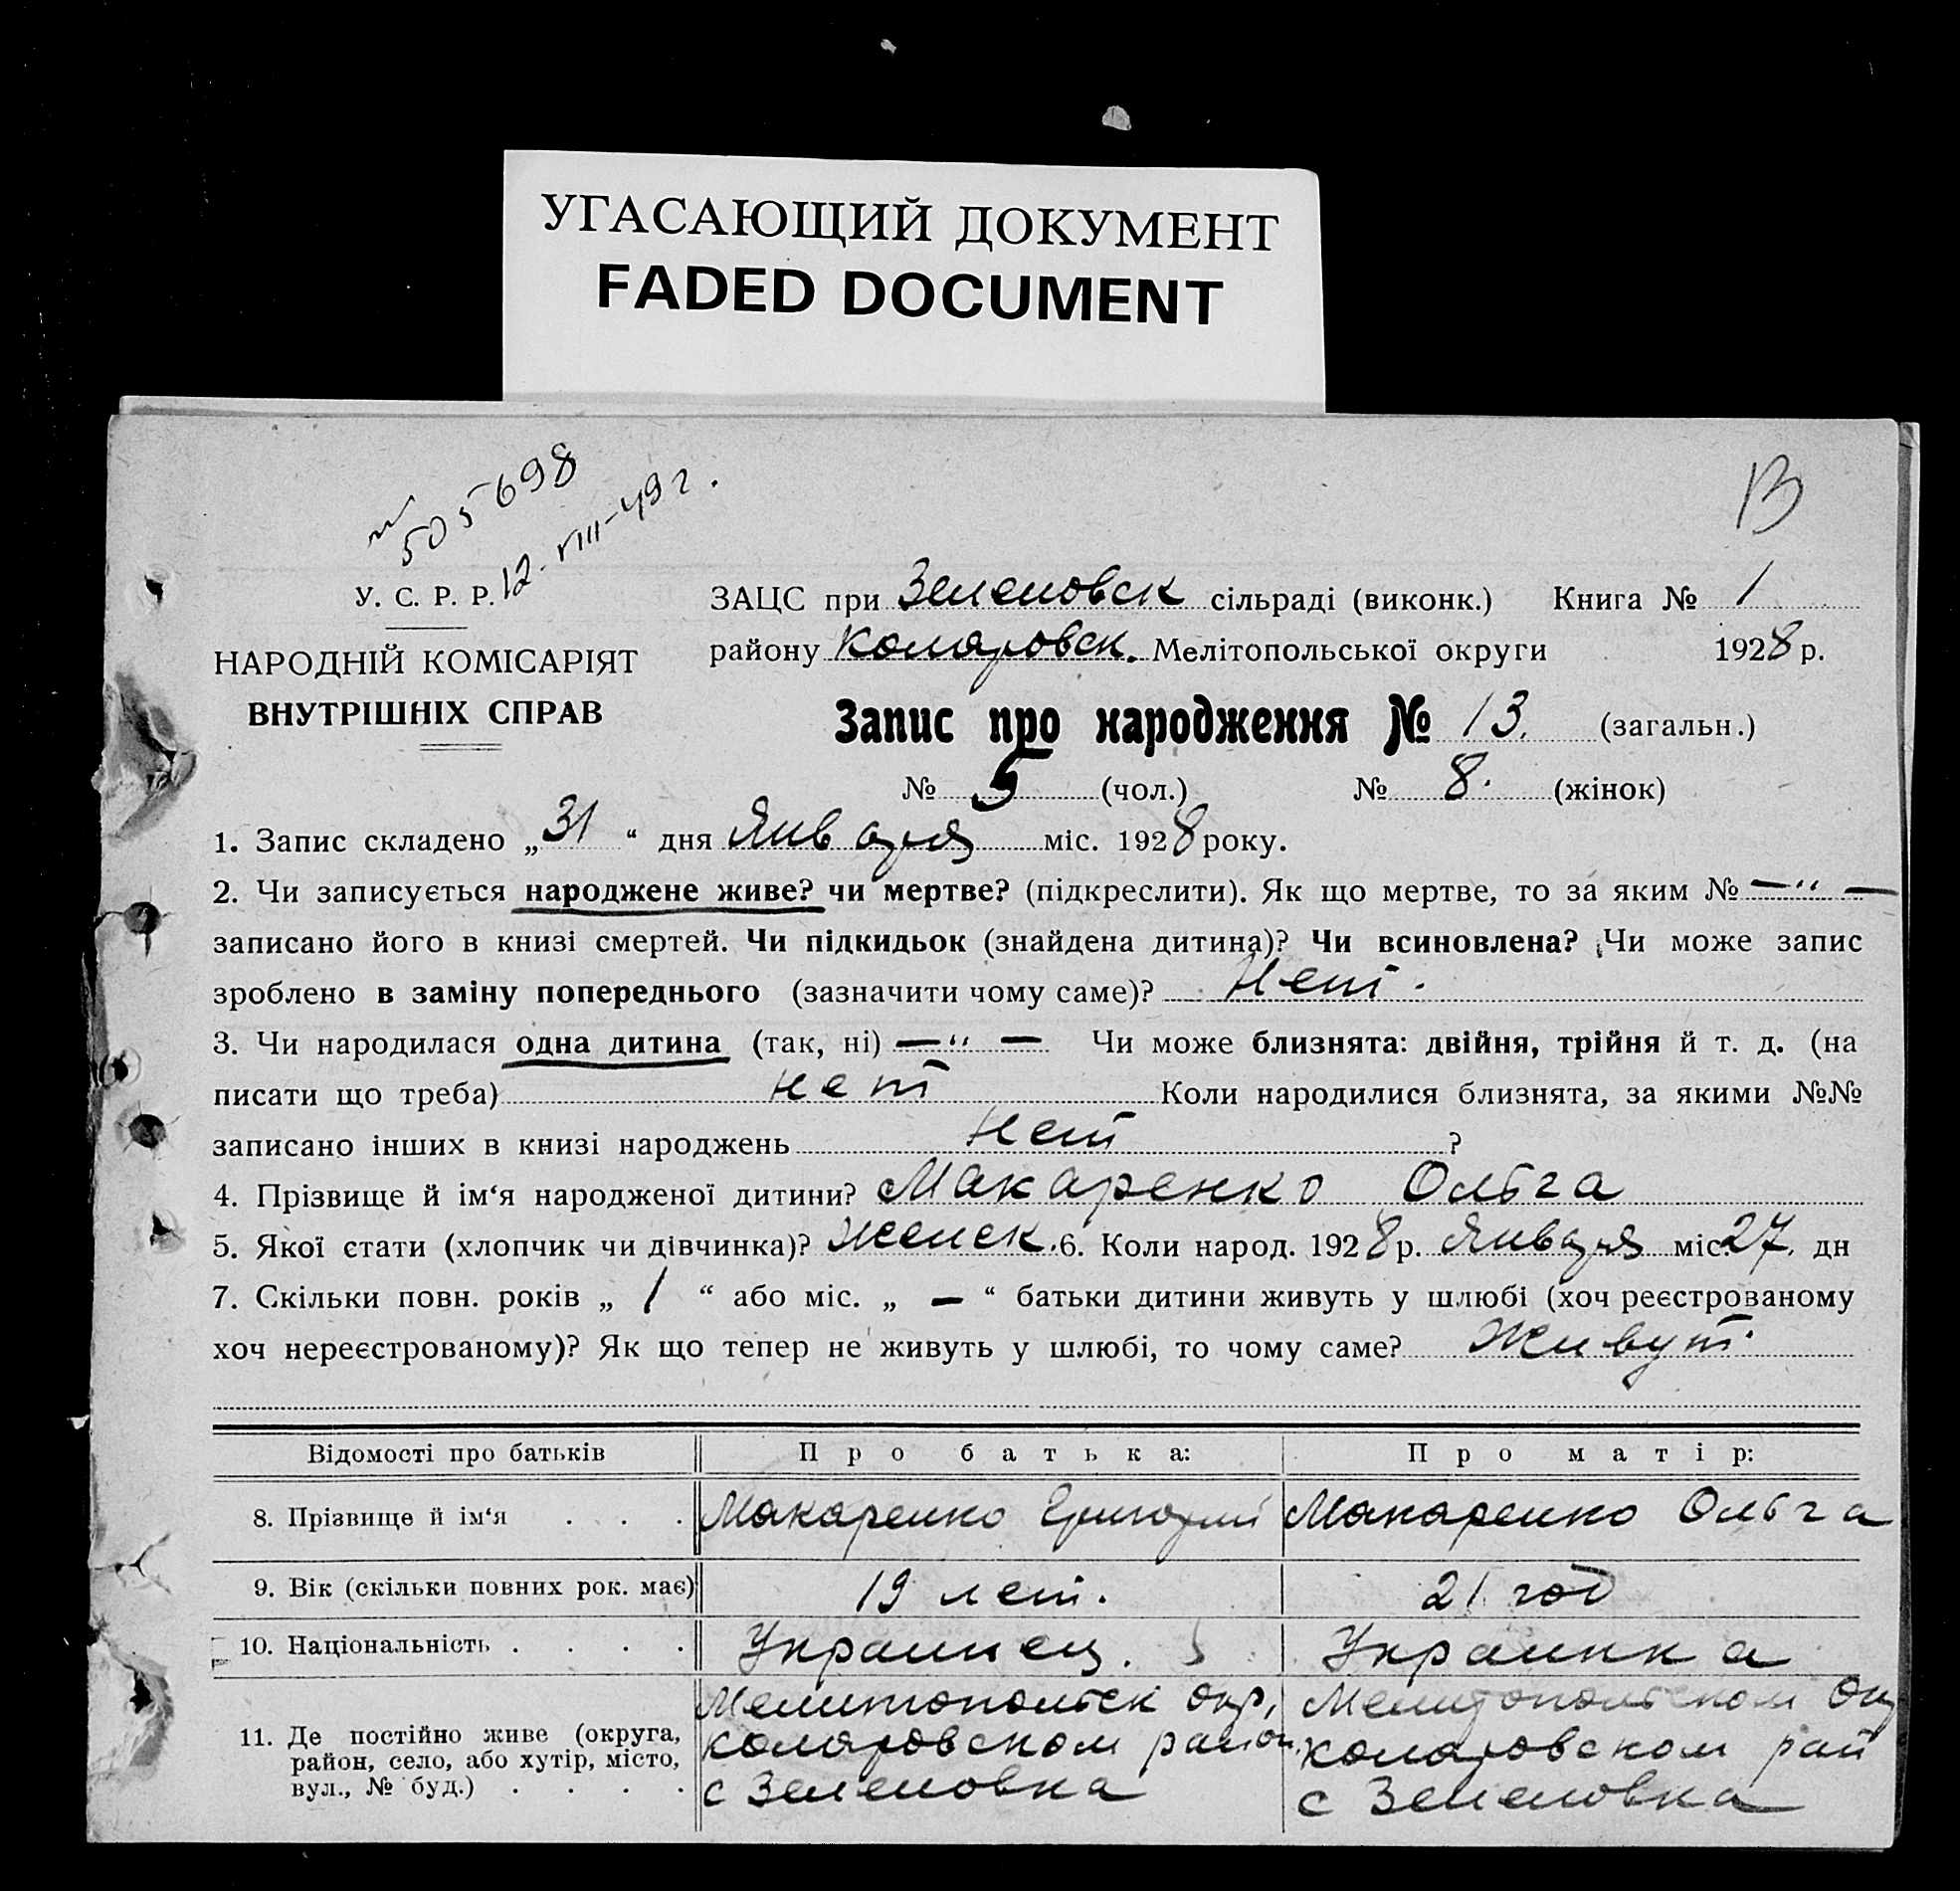 УГАСАЮЩИЙ ДОКУМЕНТ
FADED DOCUMENT
№ 505698
12-VIII-49 г.
В
У. С. Р. Р.
НАРОДНІЙ КОМІСАРІЯТ
ВНУТРІШНІХ СПРАВ
ЗАЦС при Зеленовск сільраді (виконк.) Книга № 1
району Коларовск. Мелітопольської округи 1928 р.
Запис про народження № 13. (загальн.)
№ 5 (чол.) № 8. (жінок)
1. Запис складено „31“ дня Января міс. 1928 року.
2. Чи записується народжене живе? чи мертве? (підкреслити). Як що мертве, то за яким № —"—
записано його в книзі смертей. Чи підкидьок (знайдена дитина)? Чи всиновлена? Чи може запис
зроблено в заміну попереднього (зазначити чому саме)? Нет.
3. Чи народилася одна дитина (так, ні) —"— Чи може близнята: двійня, трійня й т. д. (на
писати що треба) нет Коли народилися близнята, за якими №№
записано інших в книзі народжень нет ?
4. Прізвище й ім‘я народженої дитини? Макаренко Ольга
5. Якої стати (хлопчик чи дівчинка)? Женск. 6. Коли народ. 1928 р. Января міс. 27. дн
7. Скільки повн. років „ 1 “ або міс. „ — “ батьки дитини живуть у шлюбі (хоч реєстрованому
хоч нереєстрованому)? Як що тепер не живуть у шлюбі, то чому саме? Живут.
Відомості про батьків Про батька: Про матір:
8. Прізвище й ім‘я . . . Макаренко Григорий Макаренко Ольга
9. Вік (скільки повних рок. має) 19 лет. 21 год
10. Національність . . . . Украинец. Украинка
11. Де постійно живе (округа, Мелитопольск окр, Мелитопольском Ок
район, село, або хутір, місто, Коларовском район. Коларовском рай
вул., № буд.) . . . . с Зеленовка с Зеленовка